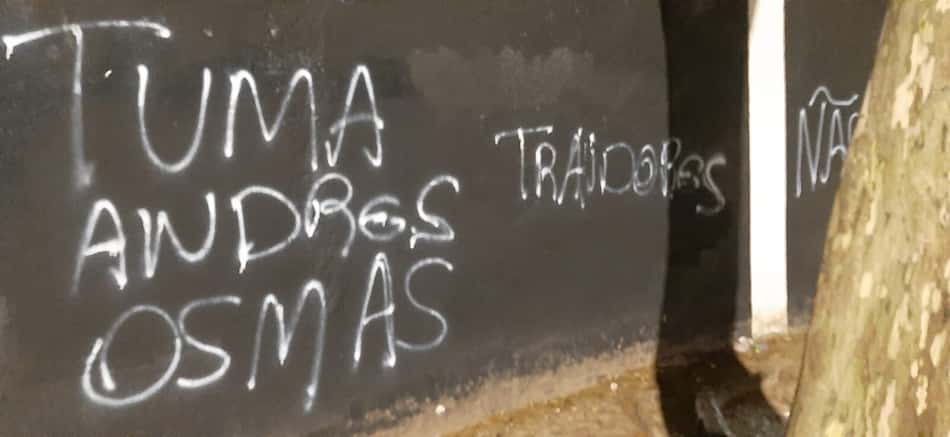 TUMA
ANDRES
OSMAS
TRAIDORES
NÃO